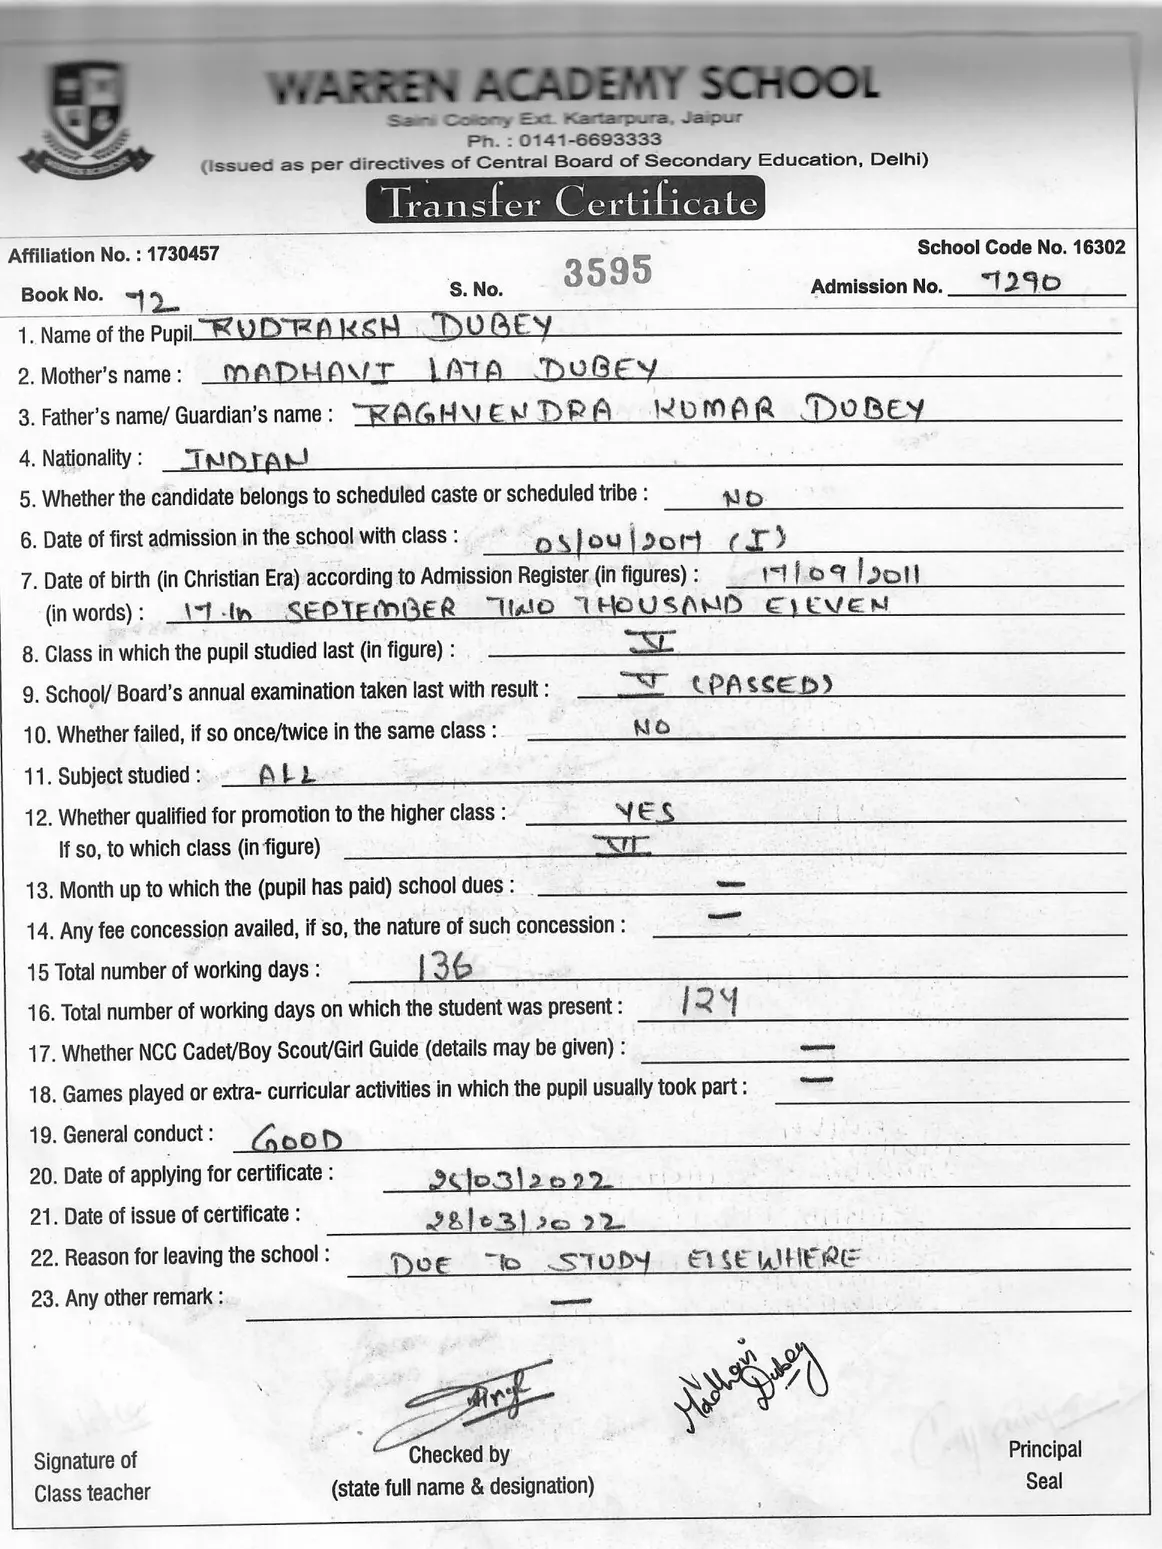 WARREN ACADEMY SCHOOL
Saini Colony Ext. Kartarpura, Jaipur
Ph. : 0141-6693333
(Issued as per directives of Central Board of Secondary Education, Delhi)
Transfer Certificate
Affiliation No. : 1730457 School Code No. 16302
Book No. 72 S. No. 3595 Admission No. 7290
1. Name of the Pupil RUDRAKSH DUBEY
2. Mother's name : MADHAVI LATA DUBEY
3. Father's name/ Guardian's name : RAGHVENDRA KUMAR DUBEY
4. Nationality : INDIAN
5. Whether the candidate belongs to scheduled caste or scheduled tribe : NO
6. Date of first admission in the school with class : 05/04/2017 (I)
7. Date of birth (in Christian Era) according to Admission Register (in figures) : 17/09/2011
(in words) : 17th SEPTEMBER TWO THOUSAND ELEVEN
8. Class in which the pupil studied last (in figure) : V
9. School/ Board's annual examination taken last with result : V (PASSED)
10. Whether failed, if so once/twice in the same class : NO
11. Subject studied : ALL
12. Whether qualified for promotion to the higher class : YES
If so, to which class (in figure) VI
13. Month up to which the (pupil has paid) school dues : —
14. Any fee concession availed, if so, the nature of such concession : —
15 Total number of working days : 136
16. Total number of working days on which the student was present : 124
17. Whether NCC Cadet/Boy Scout/Girl Guide (details may be given) : —
18. Games played or extra- curricular activities in which the pupil usually took part : —
19. General conduct : GOOD
20. Date of applying for certificate : 25/03/2022
21. Date of issue of certificate : 28/03/2022
22. Reason for leaving the school : DUE TO STUDY ELSEWHERE
23. Any other remark : —
Madhavi
Dubey
Signature of
Class teacher
Checked by
(state full name & designation)
Principal
Seal